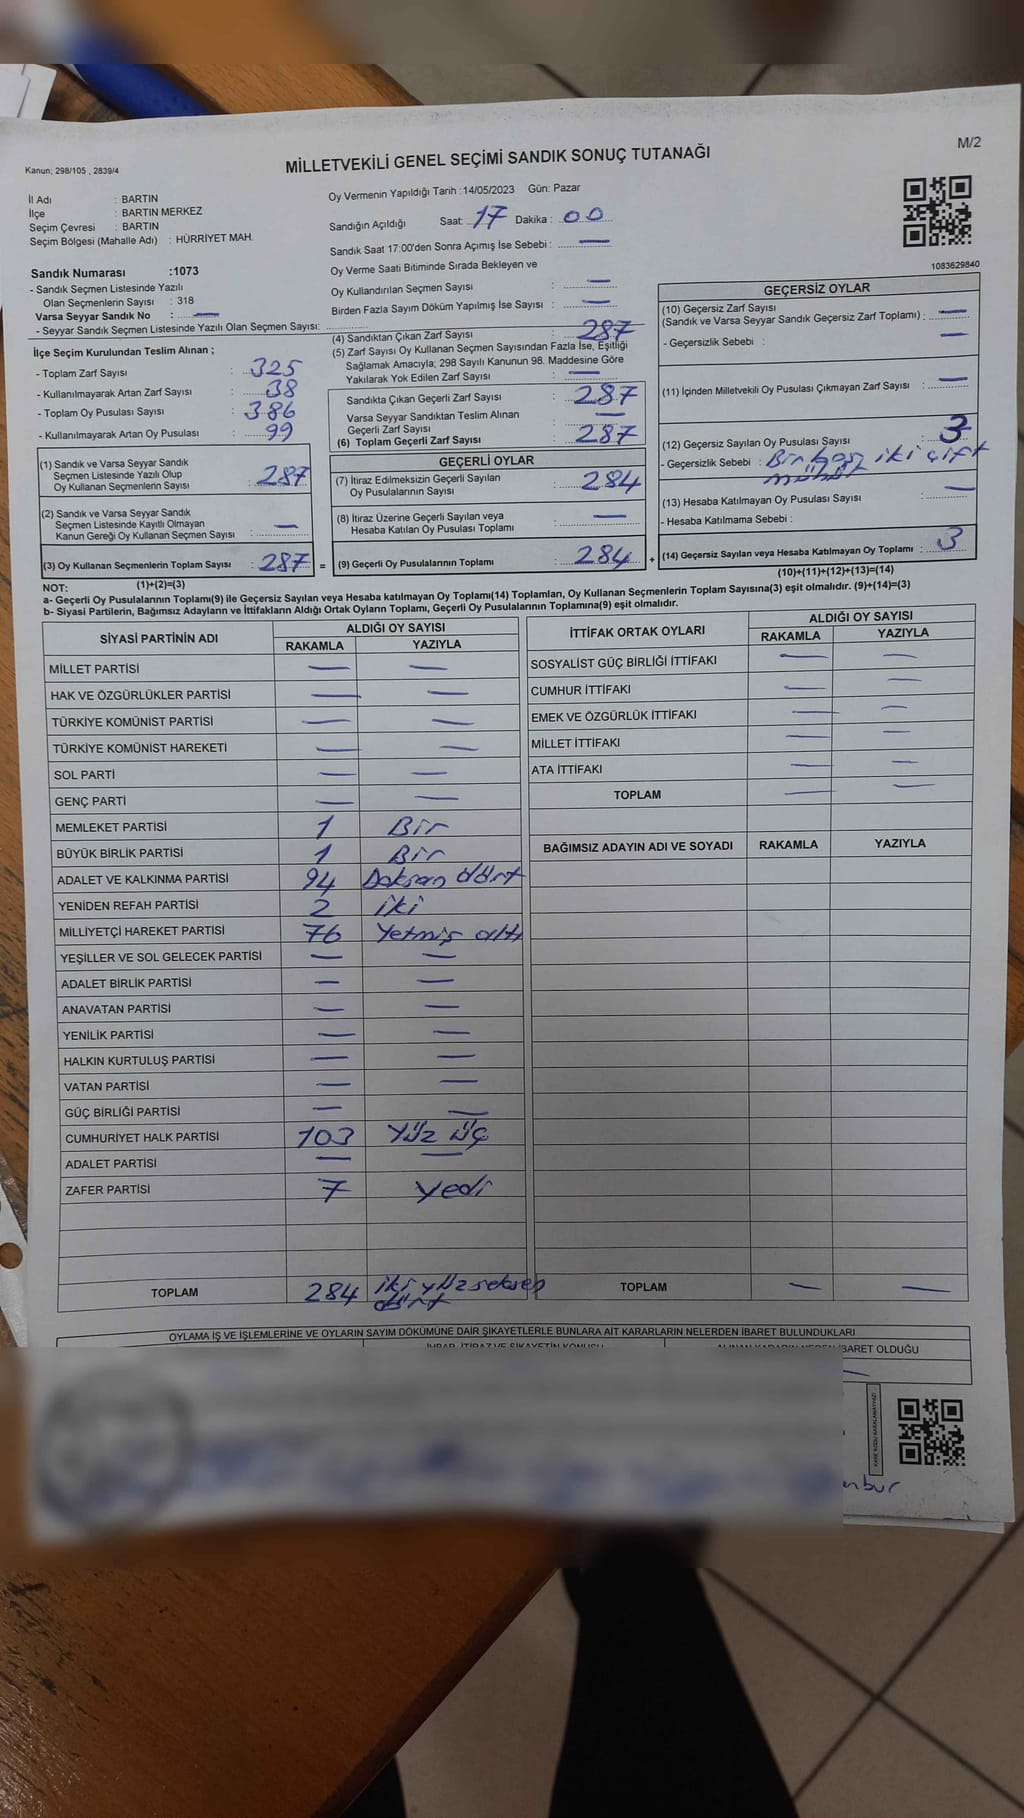 M/2
Kanun; 298/105 , 2839/4
MİLLETVEKİLİ GENEL SEÇİMİ SANDIK SONUÇ TUTANAĞI
İl Adı : BARTIN
İlçe : BARTIN MERKEZ
Seçim Çevresi : BARTIN
Seçim Bölgesi (Mahalle Adı) : HÜRRİYET MAH.
Sandık Numarası :1073
- Sandık Seçmen Listesinde Yazılı
Olan Seçmenlerin Sayısı : 318
Varsa Seyyar Sandık No : —
- Seyyar Sandık Seçmen Listesinde Yazılı Olan Seçmen Sayısı:
Oy Vermenin Yapıldığı Tarih :14/05/2023 Gün: Pazar
Sandığın Açıldığı Saat: 17 Dakika : 00
Sandık Saat 17:00'den Sonra Açımış İse Sebebi : —
Oy Verme Saati Bitiminde Sırada Bekleyen ve
Oy Kullandırılan Seçmen Sayısı : —
Birden Fazla Sayım Döküm Yapılmış İse Sayısı : —
1083629840
İlçe Seçim Kurulundan Teslim Alınan ;
- Toplam Zarf Sayısı : 325
- Kullanılmayarak Artan Zarf Sayısı : 38
- Toplam Oy Pusulası Sayısı : 386
- Kullanılmayarak Artan Oy Pusulası : 99
(1) Sandık ve Varsa Seyyar Sandık
Seçmen Listesinde Yazılı Olup
Oy Kullanan Seçmenlerin Sayısı : 287
(2) Sandık ve Varsa Seyyar Sandık
Seçmen Listesinde Kayıtlı Olmayan
Kanun Gereği Oy Kullanan Seçmen Sayısı : —
(3) Oy Kullanan Seçmenlerin Toplam Sayısı : 287 =
(1)+(2)=(3)
(4) Sandıktan Çıkan Zarf Sayısı : 287
(5) Zarf Sayısı Oy Kullanan Seçmen Sayısından Fazla İse, Eşitliği
Sağlamak Amacıyla; 298 Sayılı Kanunun 98. Maddesine Göre
Yakılarak Yok Edilen Zarf Sayısı : —
Sandıkta Çıkan Geçerli Zarf Sayısı : 287
Varsa Seyyar Sandıktan Teslim Alınan
Geçerli Zarf Sayısı : —
(6) Toplam Geçerli Zarf Sayısı : 287
GEÇERLİ OYLAR
(7) İtiraz Edilmeksizin Geçerli Sayılan
Oy Pusulalarının Sayısı : 284
(8) İtiraz Üzerine Geçerli Sayılan veya
Hesaba Katılan Oy Pusulası Toplamı : —
(9) Geçerli Oy Pusulalarının Toplamı : 284 +
GEÇERSİZ OYLAR
(10) Geçersiz Zarf Sayısı
(Sandık ve Varsa Seyyar Sandık Geçersiz Zarf Toplamı) : —
- Geçersizlik Sebebi : —
(11) İçinden Milletvekili Oy Pusulası Çıkmayan Zarf Sayısı : —
(12) Geçersiz Sayılan Oy Pusulası Sayısı : 3
- Geçersizlik Sebebi : Bir boş iki çift
mühür
(13) Hesaba Katılmayan Oy Pusulası Sayısı : —
- Hesaba Katılmama Sebebi :
(14) Geçersiz Sayılan veya Hesaba Katılmayan Oy Toplamı : 3
(10)+(11)+(12)+(13)=(14)
NOT:
a- Geçerli Oy Pusulalarının Toplamı(9) ile Geçersiz Sayılan veya Hesaba katılmayan Oy Toplamı(14) Toplamları, Oy Kullanan Seçmenlerin Toplam Sayısına(3) eşit olmalıdır. (9)+(14)=(3)
b- Siyasi Partilerin, Bağımsız Adayların ve İttifakların Aldığı Ortak Oyların Toplamı, Geçerli Oy Pusulalarının Toplamına(9) eşit olmalıdır.
SİYASİ PARTİNİN ADI ALDIĞI OY SAYISI
RAKAMLA YAZIYLA
MİLLET PARTİSİ — —
HAK VE ÖZGÜRLÜKLER PARTİSİ — —
TÜRKİYE KOMÜNİST PARTİSİ — —
TÜRKİYE KOMÜNİST HAREKETİ — —
SOL PARTİ — —
GENÇ PARTİ — —
MEMLEKET PARTİSİ 1 Bir
BÜYÜK BİRLİK PARTİSİ 1 Bir
ADALET VE KALKINMA PARTİSİ 94 Doksan dört
YENİDEN REFAH PARTİSİ 2 iki
MİLLİYETÇİ HAREKET PARTİSİ 76 Yetmiş altı
YEŞİLLER VE SOL GELECEK PARTİSİ — —
ADALET BİRLİK PARTİSİ — —
ANAVATAN PARTİSİ — —
YENİLİK PARTİSİ — —
HALKIN KURTULUŞ PARTİSİ — —
VATAN PARTİSİ — —
GÜÇ BİRLİĞİ PARTİSİ — —
CUMHURİYET HALK PARTİSİ 103 Yüz üç
ADALET PARTİSİ — —
ZAFER PARTİSİ 7 Yedi
TOPLAM 284 iki yüz seksen
dört
İTTİFAK ORTAK OYLARI ALDIĞI OY SAYISI
RAKAMLA YAZIYLA
SOSYALİST GÜÇ BİRLİĞİ İTTİFAKI — —
CUMHUR İTTİFAKI — —
EMEK VE ÖZGÜRLÜK İTTİFAKI — —
MİLLET İTTİFAKI — —
ATA İTTİFAKI — —
TOPLAM — —
BAĞIMSIZ ADAYIN ADI VE SOYADI RAKAMLA YAZIYLA
TOPLAM — —
OYLAMA İŞ VE İŞLEMLERİNE VE OYLARIN SAYIM DÖKÜMÜNE DAİR ŞİKAYETLERLE BUNLARA AİT KARARLARIN NELERDEN İBARET BULUNDUKLARI
İHBAR, İTİRAZ VE ŞİKAYETİN KONUSU
ALINAN KARARIN NEDEN İBARET OLDUĞU
—